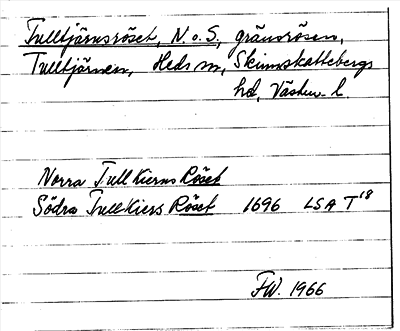 Tulltjärnsröset, N. o. S., gränsrösen,
Tulltjärnen, Heds sn, Skinnskattebergs
hd, Västm. l.
Norra Tull Kierns Röset
Södra Tull Kiers Röset 1696 LSA T 18
FW. 1966